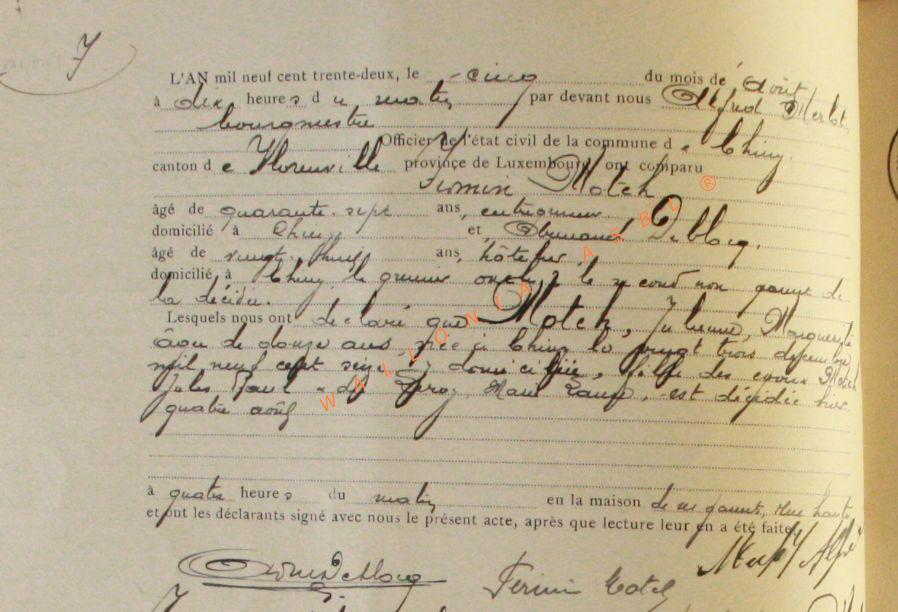 7
L'AN mil neuf cent trente-deux, le - cinq du mois de août
à dix heures du matin par devant nous Alfred Merlot,
bourgmestre
Officier de l'état civil de la commune de Chiny.
canton de Florenville province de Luxembourg ont comparu
Firmin Motch
âgé de quarante-sept ans, entrepreneur
domicilié à Chiny et Deblocq.
âgé de vingt ans, hôtelier,
domicilié à Chiny, le premier oncle, le second non parent de
la décédée.
Lesquels nous ont déclaré que Motch, Marguerite
âgée de ans, née à Chiny le vingt trois décembre
mil neuf cent seize, y domiciliée, fille des époux Motch
Jules Paul et Marie, est décédée hier
quatre août
à quatre heures du matin en la maison de ses parents, rue haute
et ont les déclarants signé avec nous le présent acte, après que lecture leur en a été faite.
Deblocq Firmin Motch
WALLONIA ASBL ®